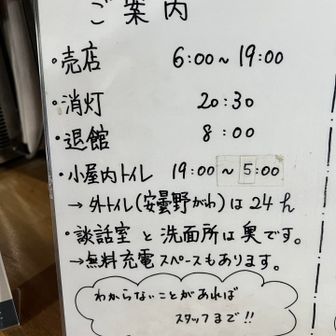 ご案内
・売店 6:00~19:00
・消灯 20:30
・退館 8:00
・小屋内トイレ 19:00~5:00
→ 外トイレ(安曇野がわ)は24h
・談話室と洗面所は奥です。
→無料充電スペースもあります。
わからないことがあれば
スタッフまで!!